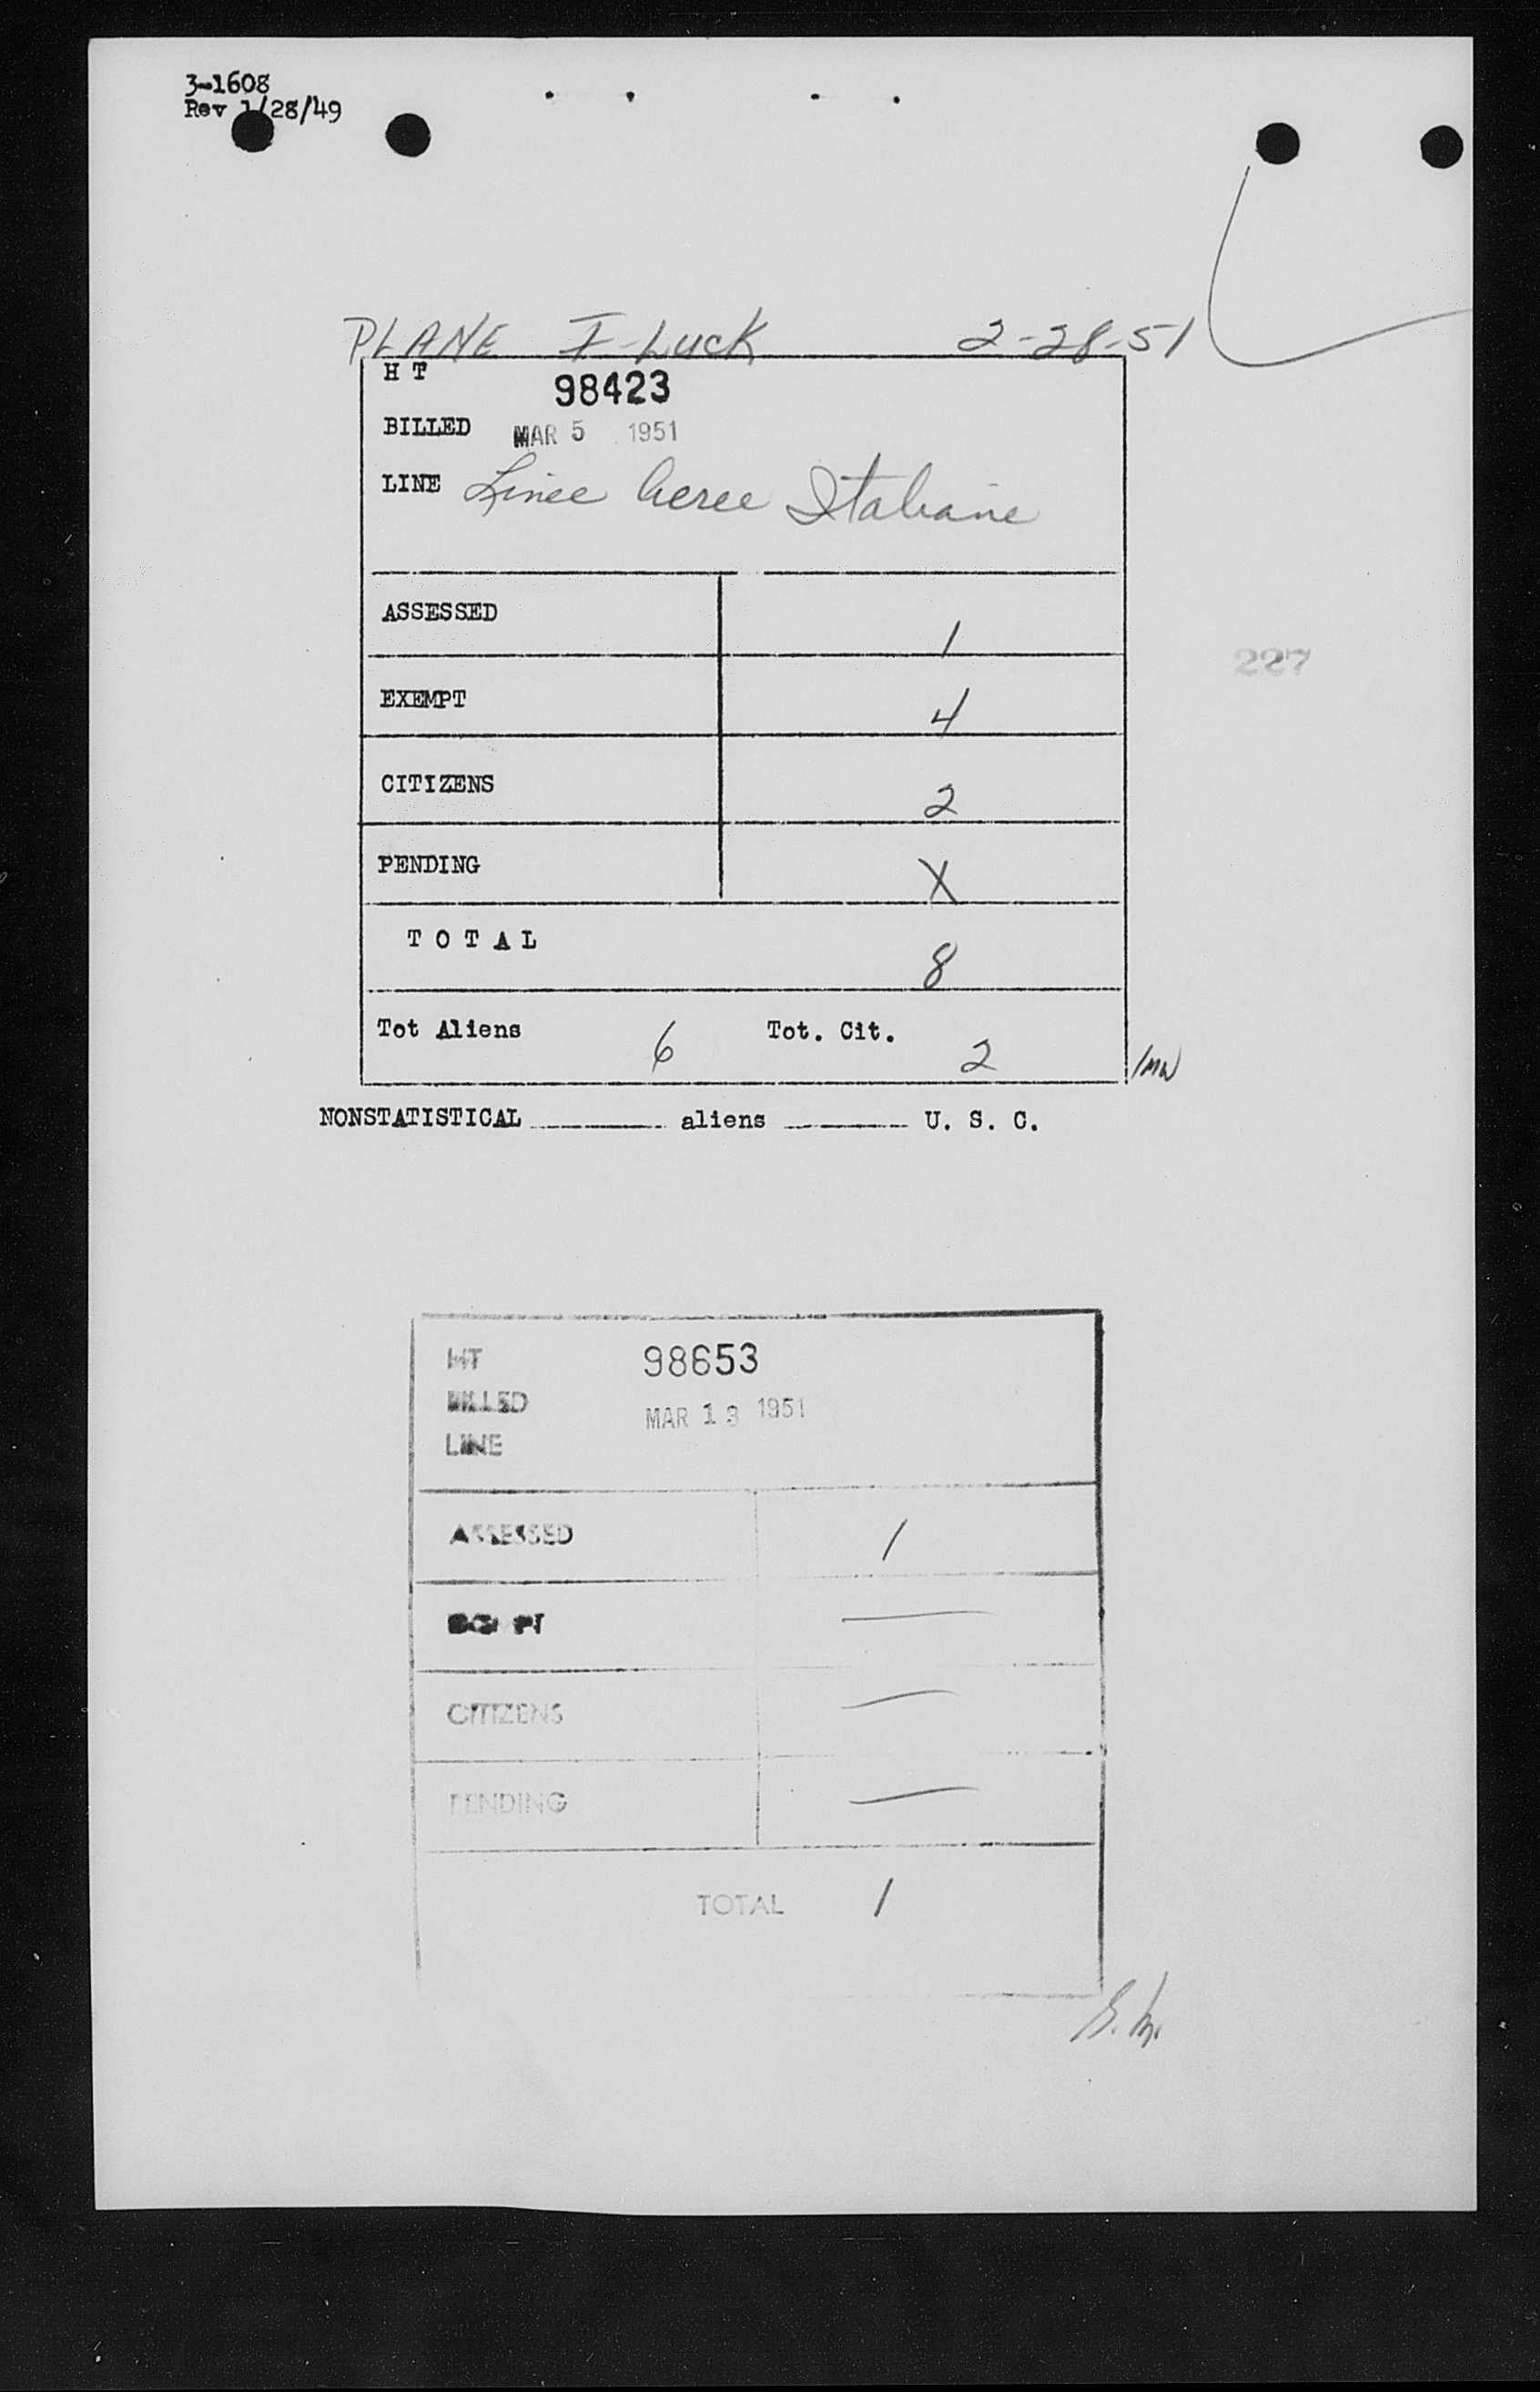 3-1608
Rev 1/28/49
PLANE I-LUCK 2-28-51
H T 98423
BILLED MAR 5 1951
LINE Linee Aeree Italiane
ASSESSED 1
227
EXEMPT 4
CITIZENS 2
PENDING X
TOTAL 8
Tot Aliens 6 Tot. Cit. 2
NONSTATISTICAL aliens U. S. C.
HT 98653
BILLED MAR 13 1951
LINE
ASSESSED 1
EXEMPT —
CITIZENS —
PENDING —
TOTAL 1